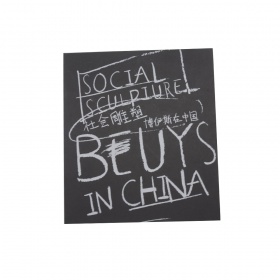 SOCIAL
SCULPTURE
社会雕塑
博伊斯在中国
BEUYS
IN CHINA